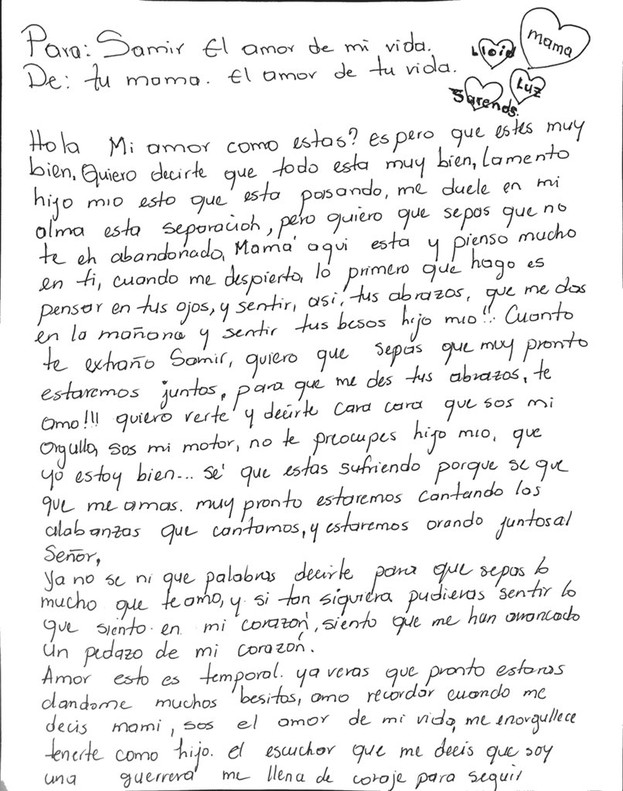 Para: Samir El amor de mi vida.
De: tu mama. El amor de tu vida.
Lloid
mama
Luz
Sarends.
Hola Mi amor como estas? espero que estes muy
bien, Quiero decirte que todo esta muy bien, Lamento
hijo mio esto que esta pasando, me duele en mi
alma esta separacion, pero quiero que sepas que no
te eh abandonado, Mamá aqui esta y pienso mucho
en ti, cuando me despierto, lo primero que hago es
pensar en tus ojos, y sentir, asi, tus abrazos, que me das
en la mañana y sentir tus besos hijo mio!! Cuanto
te extraño Samir, quiero que sepas que muy pronto
estaremos juntos, para que me des tus abrazos, te
amo!!! quiero verte y decirte cara cara que sos mi
orgullo, sos mi motor, no te preocupes hijo mio, que
yo estoy bien... sé que estas sufriendo porque se que
que me amas. muy pronto estaremos cantando los
alabanzas que cantamos, y estaremos orando juntos al
Señor,
Ya no se ni que palabras decirte para que sepas lo
mucho que te amo, y si tan siquiera pudieras sentir lo
que siento en mi corazón, siento que me han arrancado
un pedazo de mi corazón.
Amor esto es temporal. ya veras que pronto estaras
dandome muchos besitos, amo recordar cuando me
decis mami, sos el amor de mi vida, me enorgullece
tenerte como hijo. el escuchar que me decis que soy
una guerrera me llena de coraje para seguir